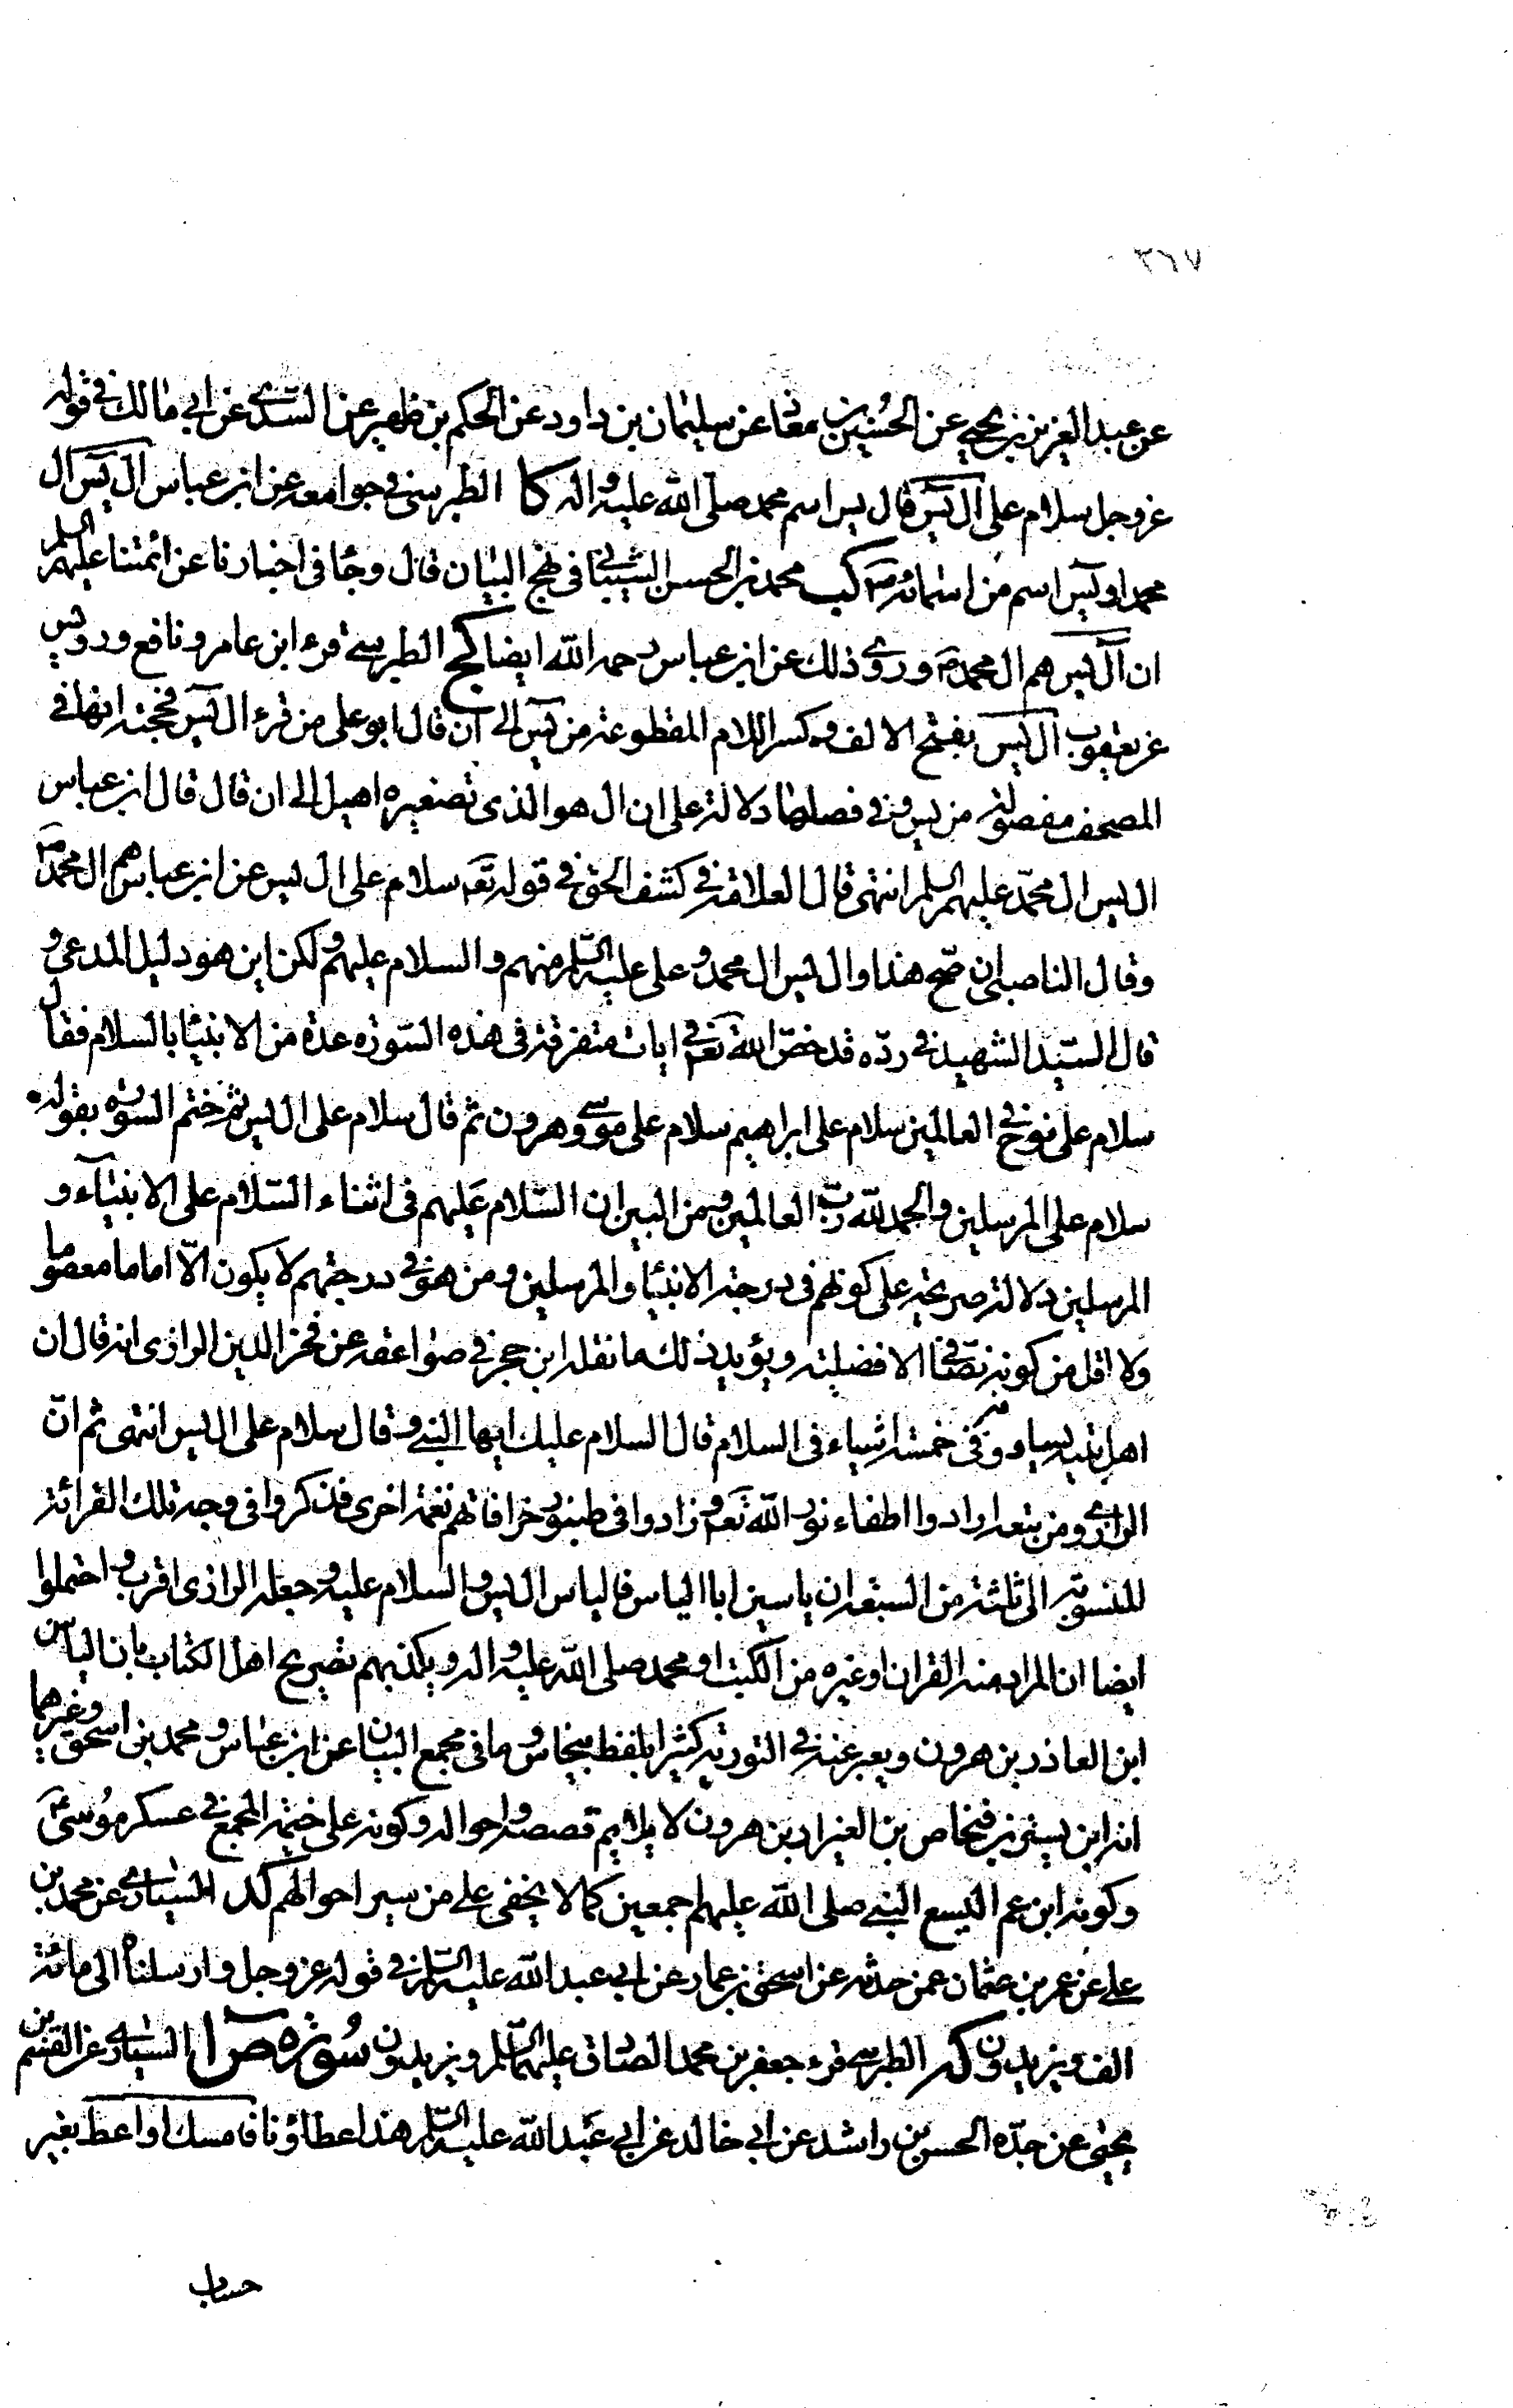 ٣٦٧
عن عبد العزيز بن يحيى عن الحسين بن معاذ عن سليمان بن داود عن الحكم بن ظهير عن السدى عن ابي مالك في قوله
عز وجل سلام على ال يس قال يس اسم محمد صلى الله عليه واله كا الطبرسى في جوامعه عن ابن عباس ال يس ال
محمد او يس اسم من اسمائه ص كب محمد بن الحسن الشيباني في نهج البيان قال وجا في اخبارنا عن ائمتنا عليهم السلم
ان ال يس هم ال محمد ص وروى ذلك عن ابن عباس رحمه الله ايضا كج الطبرسي قرء ابن عامر ونافع ورويس
عن يعقوب ال يس بفتح الالف وكسر اللام المقطوعة من يس الى ان قال ابو على من قرء ال يس فحجته انها في
المصحف مفصولة من يس وفي فصلها دلالة على ان ال هو الذى تصغيره اهيل الى ان قال قال ابن عباس
ال يس ال محمد عليهم السلم انتهى قال العلامة في كشف الحق في قوله تعه سلام على ال يس عن ابن عباس هم ال محمد ص
وقال الناصب ان صح هذا وال يس ال محمد وعلى عليه السلم منهم والسلام عليهم ولكن اين هو دليل المدعى و
قال السيد الشهيد في رده قد خص الله تعه في ايات متفرقة في هذه السورة عدة من الانبيا بالسلام فقال
سلام على نوح في العالمين سلام على ابراهيم سلام على موسى وهرون ثم قال سلام على ال يس ثم ختم السورة بقوله
سلام على المرسلين والحمد لله رب العالمين ومن البين ان السلام عليهم في اثناء السلام على الانبياء و
المرسلين دلالة صريحة على كونهم في درجة الانبيا والمرسلين ومن هو في درجتهم لا يكون الا اماما معصوما
ولا اقل من كونه نصا في الافضلية ويؤيد ذلك ما نقله ابن حجر في صواعقه عن فخر الدين الرازى انه قال ان
اهل بيته يساوونه في خمسة اشياء في السلام قال السلام عليك ايها النبي وقال سلام على ال يس انتهى ثم ان
الرازى ومن تبعه ارادوا اطفاء نور الله تعه وزادوا في طنبور خرافاتهم نغمة اخرى فذكروا في وجه تلك القرائة
المنسوبة الى ثلثة من السبعة ان ياسين ابا الياس فالياس ال يس والسلام عليه وجعله الرازى اقرب واحتملوا
ايضا ان المراد منه القران او غيره من الكتب او محمد صلى الله عليه واله ويكذبهم تصريح اهل الكتاب بان الياس
ابن العاذر بن هرون ويعبر عنه في التورية كثيرا بلفظ بينحاس وما في مجمع البيان عن ابن عباس ومحمد بن اسحق وغيرهما
انه ابن يستر بن فنحاص بن العيزار بن هرون لا يلايم قصصه واحواله وكونه على خيمة المجمع في عسكر موسى ع
وكونه ابن عم اليسع النبي صلى الله عليهم اجمعين كما لا يخفى على من سبر احوالهم كد السيارى عن محمد بن
علي عن عمر بن عثمان عمن حدثه عن اسحق بن عمار عن ابي عبد الله عليه السلم في قوله عز وجل وارسلناه الى مائة
الف ويزيدون كه الطبرسي قرء جعفر بن محمد الصادق عليهما السلم ويزيدون سورة ص ا السيارى عن القسم بن
يحيى عن جده الحسن بن راشد عن ابي خالد عن ابي عبد الله عليه السلم هذا عطاؤنا فامسك او اعط بغير
حساب